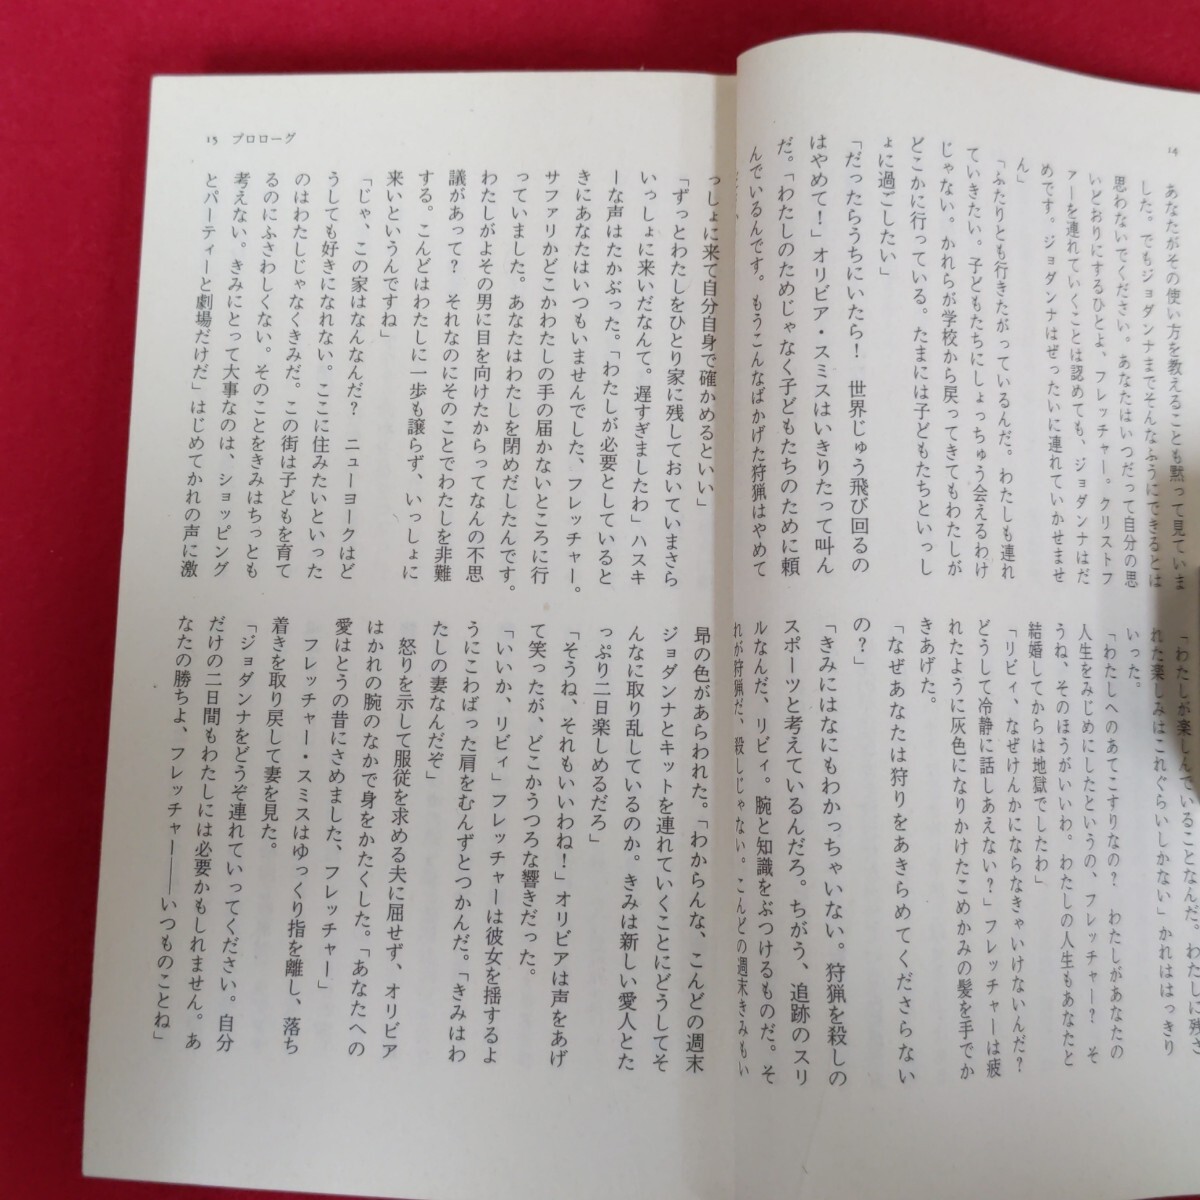 14
あなたがその使い方を教えることも黙って見ていま
した。でもジョダンナまでそんなふうにできるとは
思わないでください。あなたはいつだって自分の思
いどおりにするひとよ、フレッチャー。クリストフ
ァーを連れていくことは認めても、ジョダンナはだ
めです。ジョダンナはぜったいに連れていかせませ
ん」
「ふたりとも行きたがっているんだ。わたしも連れ
ていきたい。子どもたちにしょっちゅう会えるわけ
じゃない。かれらが学校から戻ってきてもわたしが
どこかに行っている。たまには子どもたちといっし
ょに過ごしたい」
「だったらうちにいたら！　世界じゅう飛び回るの
はやめて！」オリビア・スミスはいきりたって叫ん
だ。「わたしのためじゃなく子どもたちのために頼
んでいるんです。もうこんなばかげた狩猟はやめて
「わたしが楽しんでいることなんだ。わたしに残さ
れた楽しみはこれぐらいしかない」かれははっきり
いった。
「わたしへのあてこすりなの？　わたしがあなたの
人生をみじめにしたというの、フレッチャー？　そ
うね、そのほうがいいわ。わたしの人生もあなたと
結婚してからは地獄でしたわ」
「リビィ、なぜけんかにならなきゃいけないんだ？
どうして冷静に話しあえない？」フレッチャーは疲
れたように灰色になりかけたこめかみの髪を手でか
きあげた。
「なぜあなたは狩りをあきらめてくださらない
の？」
「きみにはなにもわかっちゃいない。狩猟を殺しの
スポーツと考えているんだろ。ちがう、追跡のスリ
ルなんだ、リビィ。腕と知識をぶつけるものだ。そ
れが狩猟だ、殺しじゃない。こんどの週末きみもい
15　プロローグ
っしょに来て自分自身で確かめるといい」
「ずっとわたしをひとり家に残しておいていまさら
いっしょに来いだなんて。遅すぎましたわ」ハスキ
ーな声はたかぶった。「わたしが必要としていると
きにあなたはいつもいませんでした、フレッチャー。
サファリかどこかわたしの手の届かないところに行
っていました。あなたはわたしを閉めだしたんです。
わたしがよその男に目を向けたからってなんの不思
議があって？　それなのにそのことでわたしを非難
する。こんどはわたしに一歩も譲らず、いっしょに
来いというんですね」
「じゃ、この家はなんなんだ？　ニューヨークはど
うしても好きになれない。ここに住みたいといった
のはわたしじゃなくきみだ。この街は子どもを育て
るのにふさわしくない。そのことをきみはちっとも
考えない。きみにとって大事なのは、ショッピング
とパーティーと劇場だけだ」はじめてかれの声に激
昂の色があらわれた。「わからんな、こんどの週末
ジョダンナとキットを連れていくことにどうしてそ
んなに取り乱しているのか。きみは新しい愛人とた
っぷり二日楽しめるだろ」
「そうね、それもいいわね！」オリビアは声をあげ
て笑ったが、どこかうつろな響きだった。
「いいか、リビィ」フレッチャーは彼女を揺するよ
うにこわばった肩をむんずとつかんだ。「きみはわ
たしの妻なんだぞ」
怒りを示して服従を求める夫に屈せず、オリビア
はかれの腕のなかで身をかたくした。「あなたへの
愛はとうの昔にさめました、フレッチャー」
フレッチャー・スミスはゆっくり指を離し、落ち
着きを取り戻して妻を見た。
「ジョダンナをどうぞ連れていってください。自分
だけの二日間もわたしには必要かもしれません。あ
なたの勝ちよ、フレッチャー――いつものことね」